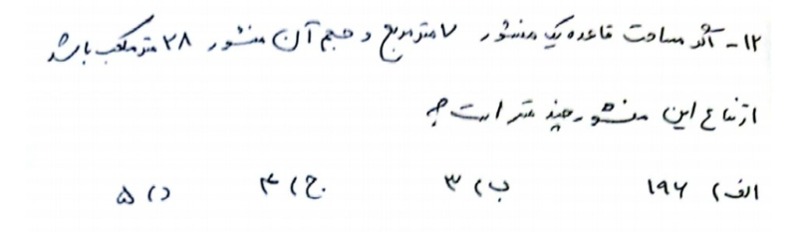 ۱۲- اگر مساحت قاعده یک منشور ۷ مترمربع و حجم آن منشور ۲۸ مترمکعب باشد
ارتفاع این منشور چند متر است؟
الف) ۱۹۶ ب) ۳ ج) ۴ د) ۵